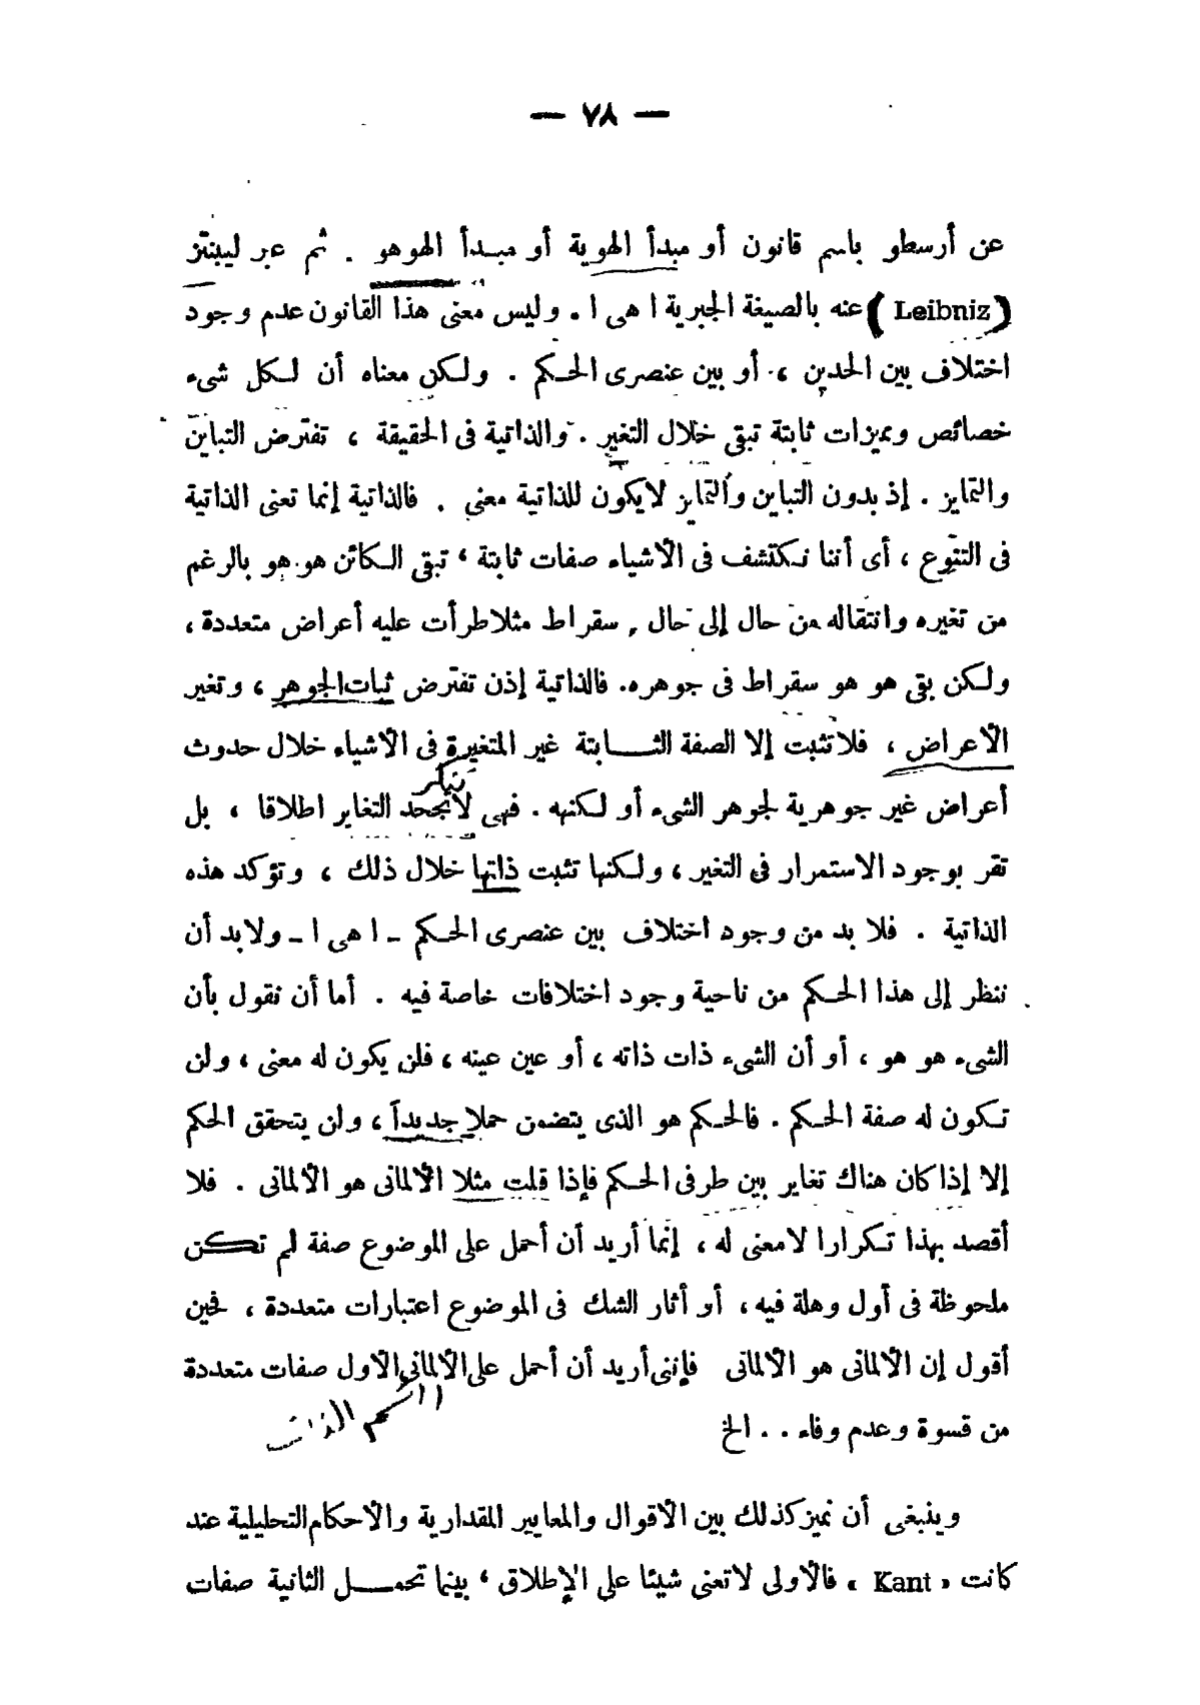 — ٧٨ —
عن أرسطو باسم قانون أو مبدأ الهوية أو مبدأ الهوهو . ثم عبر ليبنتز
(Leibniz) عنه بالصيغة الجبرية ا هى ا . وليس معنى هذا القانون عدم وجود
اختلاف بين الحدين ، أو بين عنصرى الحكم . ولكن معناه أن لكل شىء
خصائص ومميزات ثابتة تبقى خلال التغير . والذاتية فى الحقيقة ، تفترض التباين
والتمايز . إذ بدون التباين والتمايز لا يكون للذاتية معنى . فالذاتية إنما تعنى الذاتية
فى التنوع ، أى أننا نكتشف فى الأشياء صفات ثابتة ، تبقى الكائن هو هو بالرغم
من تغيره وانتقاله من حال إلى حال , سقراط مثلا طرأت عليه أعراض متعددة ،
ولكن بقى هو هو سقراط فى جوهره. فالذاتية إذن تفترض ثبات الجوهر ، وتغير
الأعراض ، فلا تثبت إلا الصفة الثابتة غير المتغيرة فى الأشياء خلال حدوث
تنكر
أعراض غير جوهرية لجوهر الشىء أو لكنهه . فهى لا تجحد التغاير اطلاقا ، بل
تقر بوجود الاستمرار فى التغير ، ولكنها تثبت ذاتها خلال ذلك ، وتؤكد هذه
الذاتية . فلا بد من وجود اختلاف بين عنصرى الحكم - ا هى ا - ولابد أن
ننظر إلى هذا الحكم من ناحية وجود اختلافات خاصة فيه . أما أن نقول بأن
الشىء هو هو ، أو أن الشىء ذات ذاته ، أو عين عينه ، فلن يكون له معنى ، ولن
تكون له صفة الحكم . فالحكم هو الذى يتضمن حملا جديداً ، ولن يتحقق الحكم
إلا إذا كان هناك تغاير بين طرفى الحكم فإذا قلت مثلا الألمانى هو الألمانى . فلا
أقصد بهذا تكرارا لا معنى له ، إنما أريد أن أحمل على الموضوع صفة لم تكن
ملحوظة فى أول وهلة فيه ، أو أثار الشك فى الموضوع اعتبارات متعددة ، فحين
أقول إن الألمانى هو الألمانى فإننى أريد أن أحمل على الألمانى الأول صفات متعددة
من قسوة وعدم وفاء . . الخ
وينبغى أن نميز كذلك بين الأقوال والمعايير المقدارية والأحكام التحليلية عند
كانت « Kant » فالأولى لا تعنى شيئا على الإطلاق ، بينما تحمل الثانية صفات